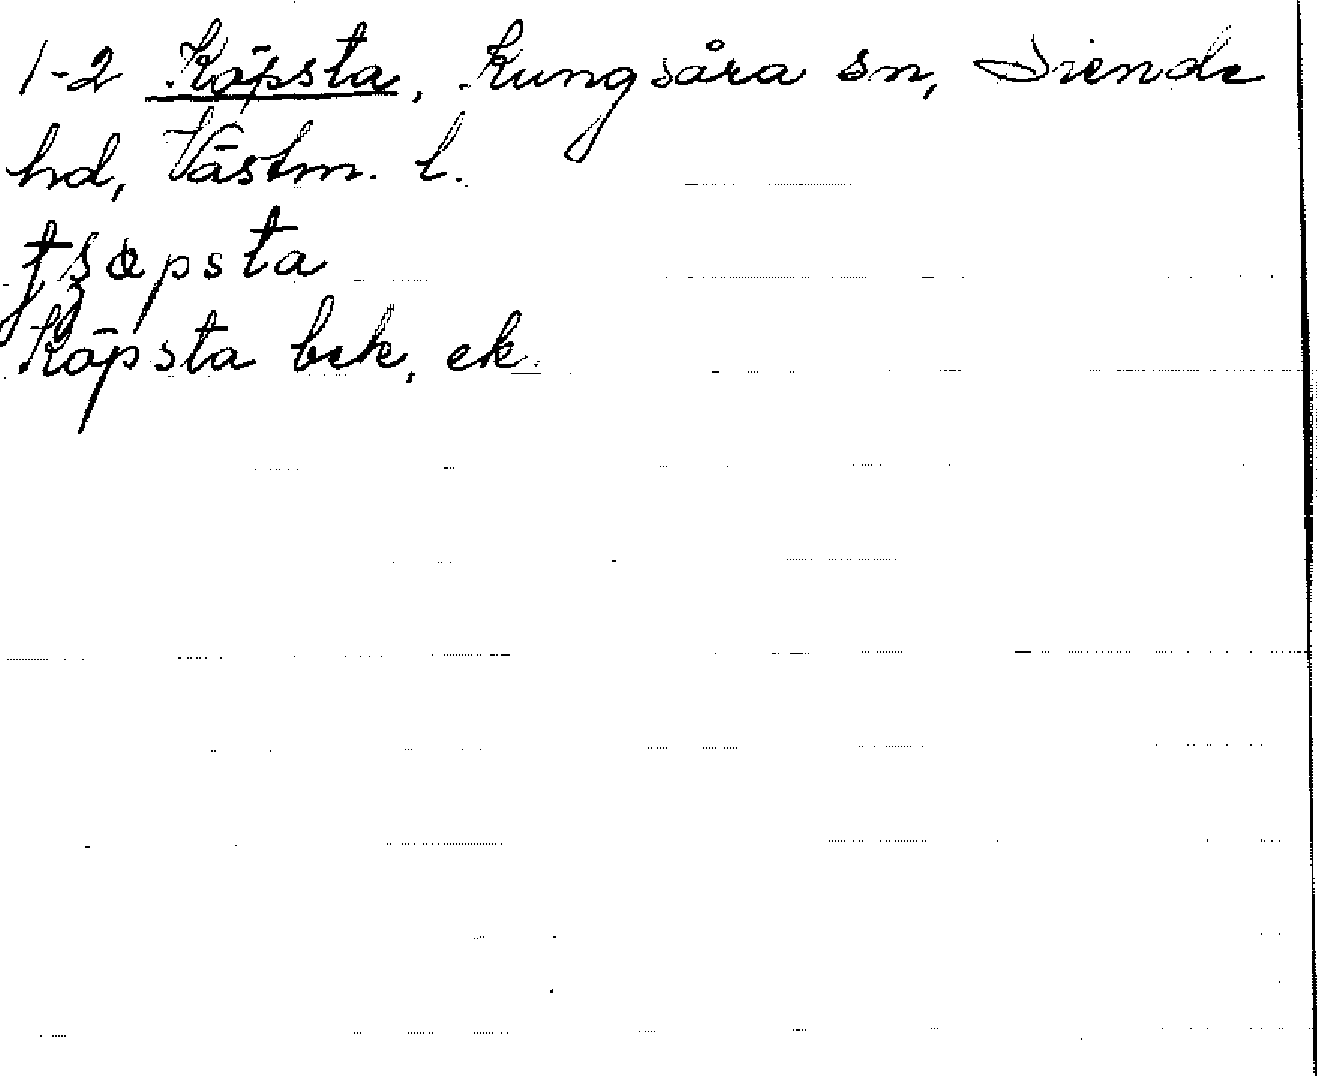 1-2 Köpsta, Kungsåra sn, Siende
hd, Västm. l.
Köpsta bek, ek.